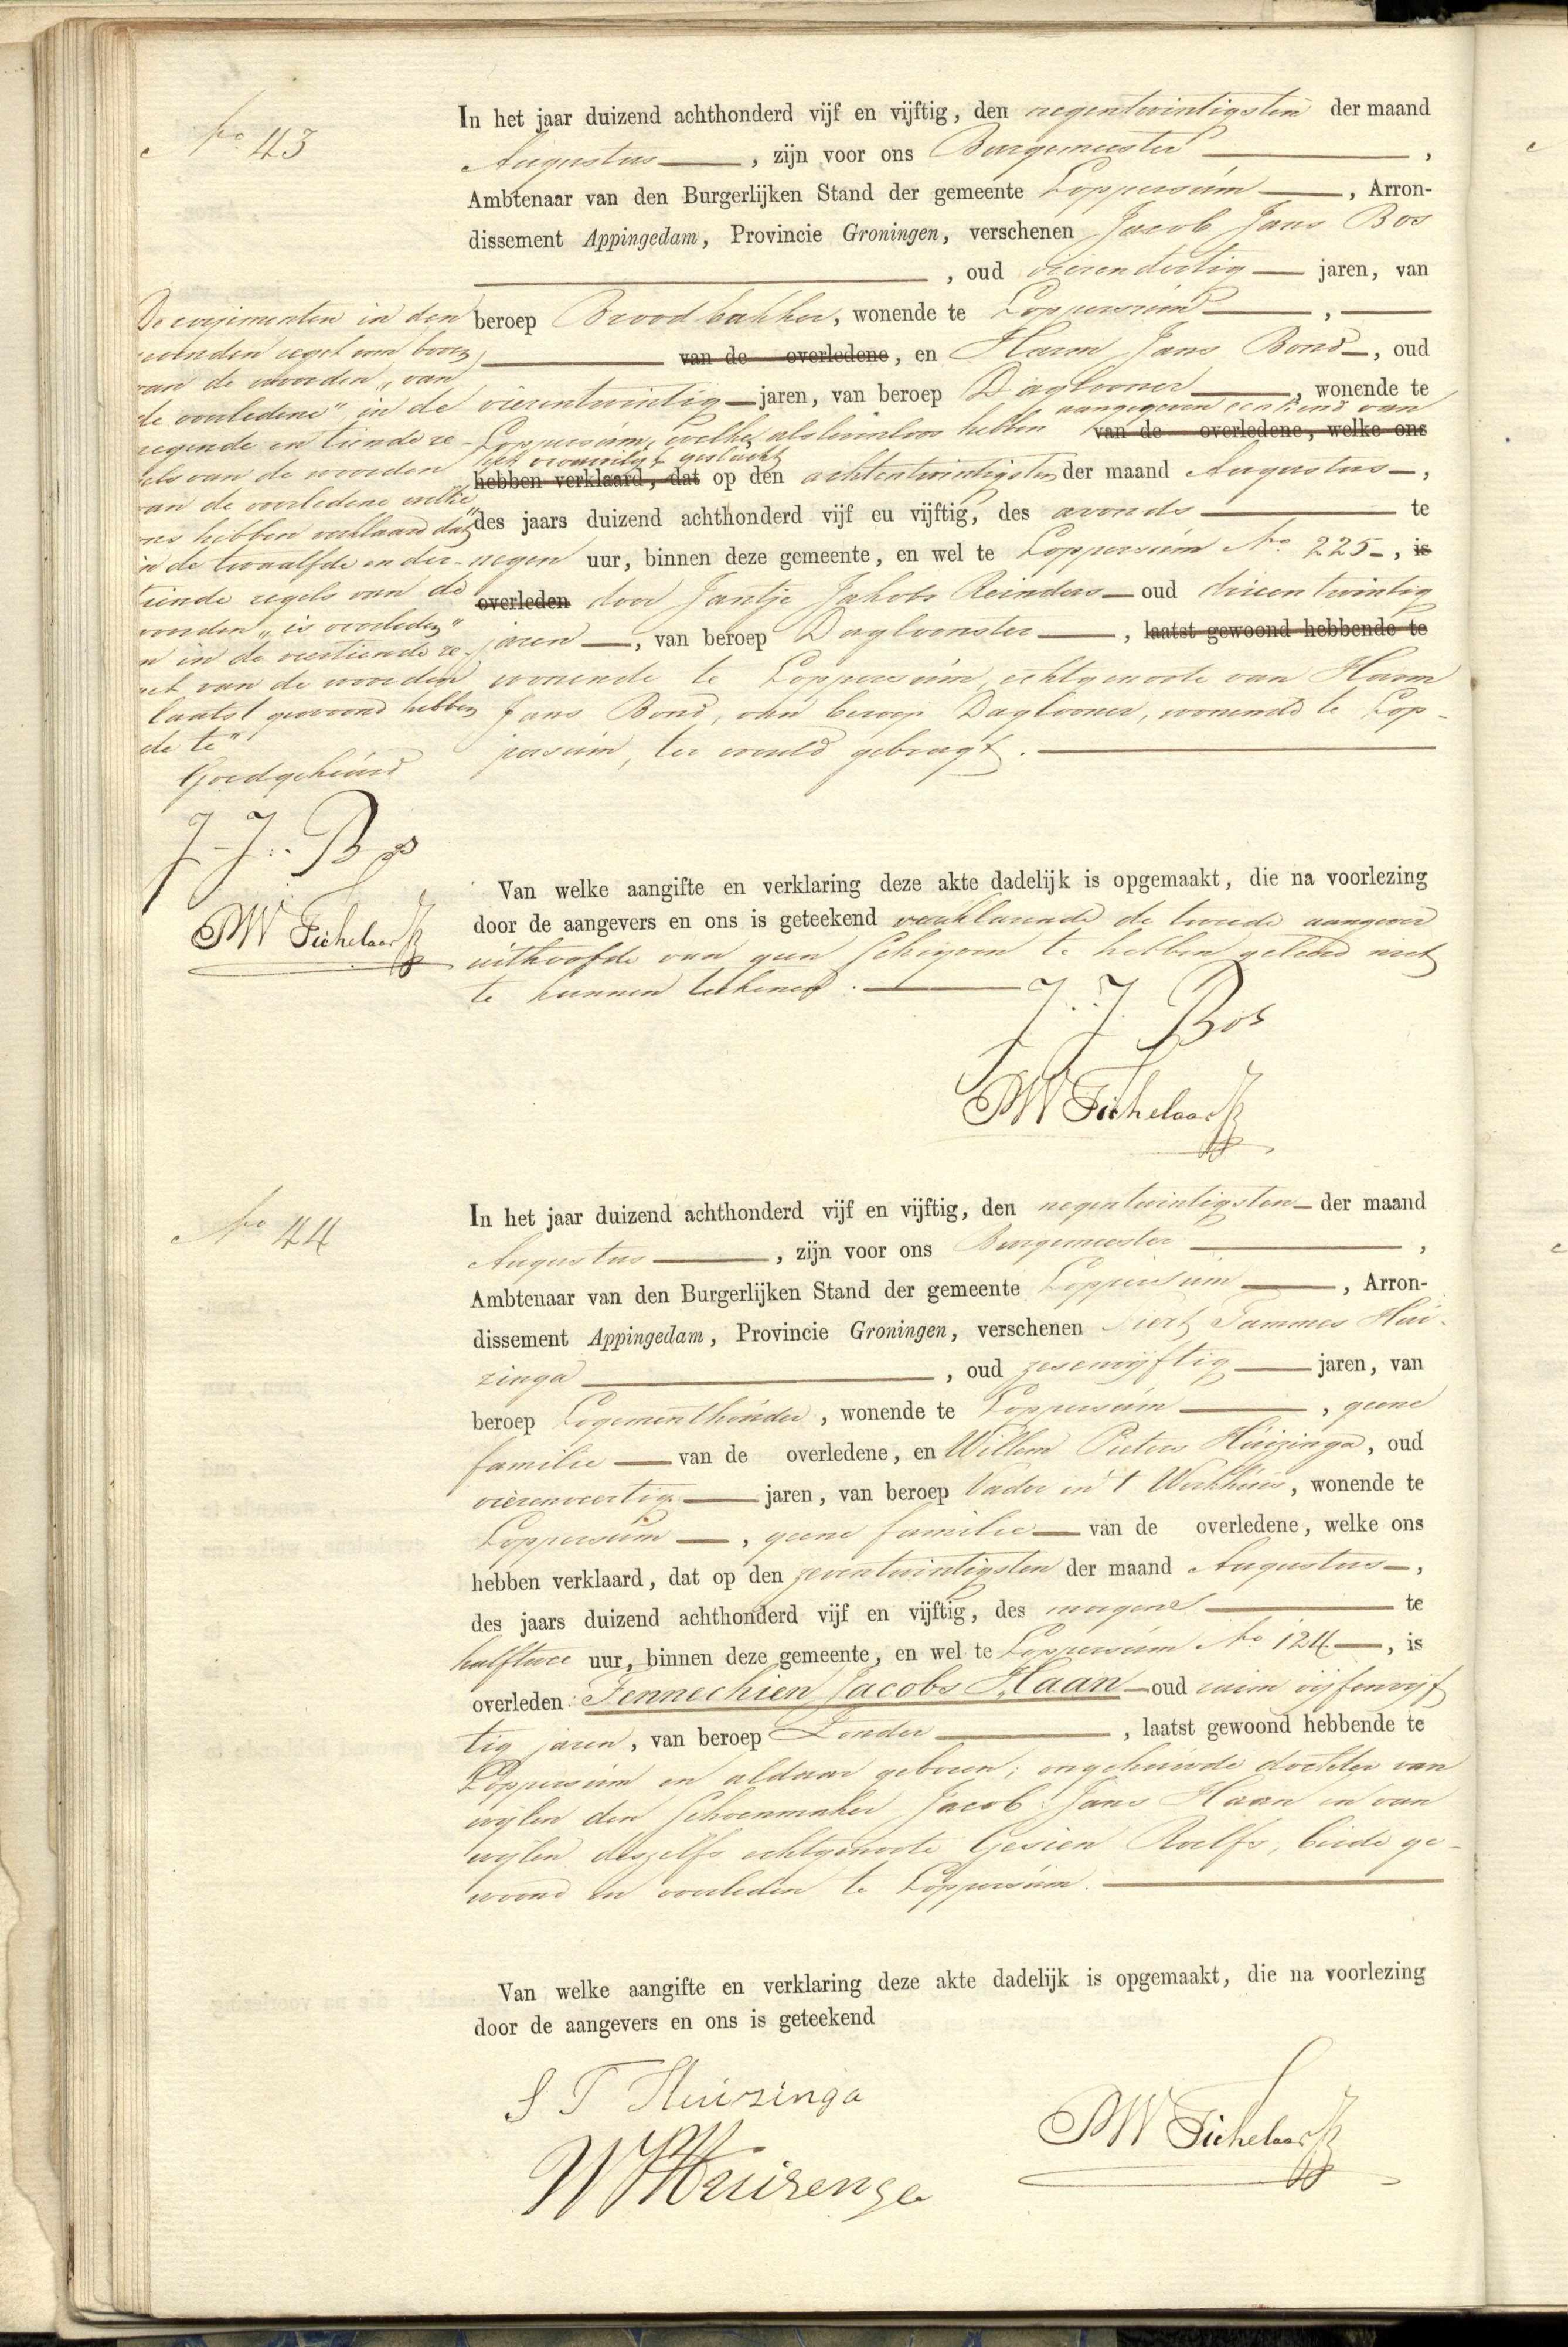 No 43
In het jaar duizend achthonderd vijf en vijftig, den negentwintigsten der maand
Augustus, zijn voor ons Burgemeester,
Ambtenaar van den Burgerlijken Stand der gemeente Loppersum, Arron-
dissement Appingedam, Provincie Groningen, verschenen Jacob Jans Bos
, oud vierendertig jaren, van
beroep Broodbakker, wonende te Loppersum,
van de overledene, en Harm Jans Bond, oud
vierentwintig jaren, van beroep Daglooner, wonende te
Loppersum, welke als levenloos hebben aangegeven een kind van van de overledene, welke ons
het vrouwelijk geslacht hebben verklaard, dat op den achtentwintigsten der maand Augustus,
des jaars duizend achthonderd vijf eu vijftig, des avonds te
negen uur, binnen deze gemeente, en wel te Loppersum No 225, is
overleden door Jantje Jakobs Reinders oud drieentwintig
jaren, van beroep Dagloonster, laatst gewoond hebbende te
wonende te Loppersum, echtgenoote van Harm
Jans Bond, van beroep Daglooner, wonende te Lop-
persum, ter wereld gebragt.
in den
regel van boven
van de woorden „van
de overledene" in de
negende en tiende re-
gels van de woorden
van de overledene welke
ons hebben verklaard dat"
in de twaalfde en der-
tiende regels van de
woorden „is overleden"
en in de veertiende re-
gel van de woorden
laatst gewoond hebben
de te"
Goedgekeurd
J. J. Bos
PW Fichelaar
Van welke aangifte en verklaring deze akte dadelijk is opgemaakt, die na voorlezing
door de aangevers en ons is geteekend verklarende de tweede aangever
uithoofde van geen schrijven te hebben geleerd niet
te kunnen teekenen.
J. J. Bos
PW Fichelaar
No 44
In het jaar duizend achthonderd vijf en vijftig, den negentwintigsten der maand
Augustus, zijn voor ons Burgemeester,
Ambtenaar van den Burgerlijken Stand der gemeente Loppersum, Arron-
dissement Appingedam, Provincie Groningen, verschenen Siert Tammes Hui-
zinga, oud zesenvijftig jaren, van
beroep Logementhouder, wonende te Loppersum, geene
familie van de overledene, en Willem Pieters Huizinga, oud
vierenveertig jaren, van beroep Vader in 't Werkhuis, wonende te
Loppersum, geene familie van de overledene, welke ons
hebben verklaard, dat op den zeventwintigsten der maand Augustus,
des jaars duizend achthonderd vijf en vijftig, des morgens te
halftwee uur, binnen deze gemeente, en wel te Loppersum No 124, is
overleden: Fennechien Jacobs Haan oud ruim vijfenvijf
tig jaren, van beroep Zonder, laatst gewoond hebbende te
Loppersum en aldaar geboren; ongehuwde dochter van
wijlen den Schoenmaker Jacob Jans Haan en van
wijlen deszelfs echtgenoote Gesien Roelfs, beide ge-
woond en overleden te Loppersum.
Van welke aangifte en verklaring deze akte dadelijk is opgemaakt, die na voorlezing
door de aangevers en ons is geteekend
S T Huizinga
WPHuizenga
PW Fichelaar